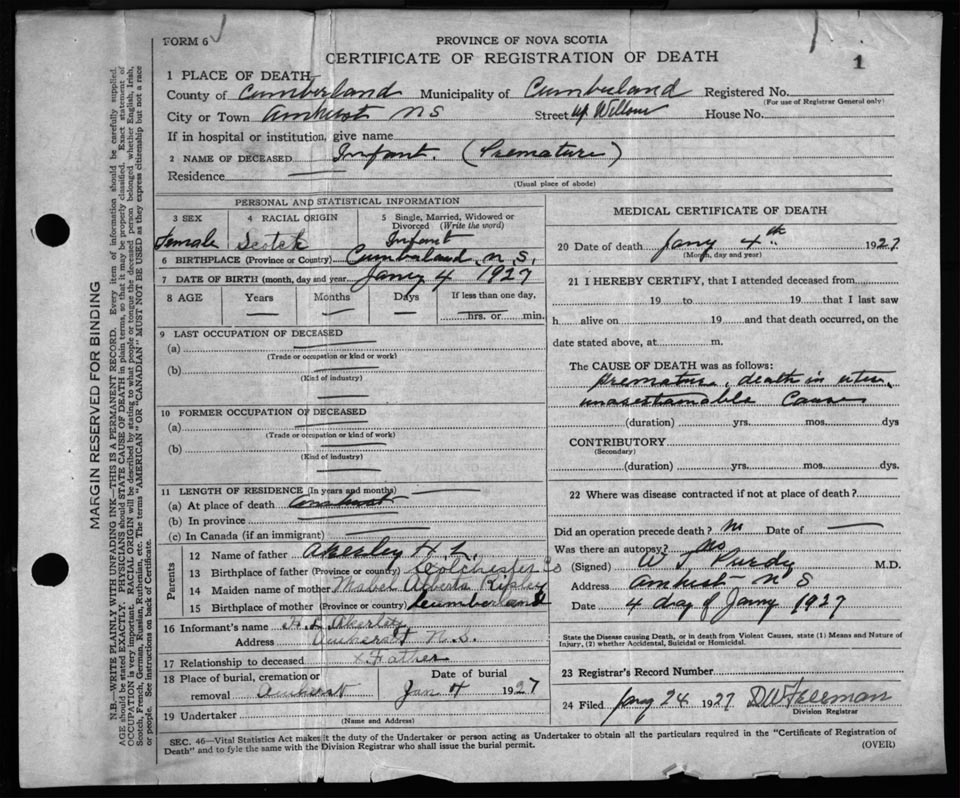 FORM 6
PROVINCE OF NOVA SCOTIA
CERTIFICATE OF REGISTRATION OF DEATH
1
1 PLACE OF DEATH—
County of Cumberland Municipality of Cumberland Registered No.
(For use of Registrar General only)
City or Town Amherst NS Street Willow House No.
If in hospital or institution, give name
2 NAME OF DECEASED Infant. (Premature)
Residence
(Usual place of abode)
MARGIN RESERVED FOR BINDING
N.B.—WRITE PLAINLY WITH UNFADING INK—THIS IS A PERMANENT RECORD. Every item of information should be carefully supplied.
AGE should be stated EXACTLY. PHYSICIANS should STATE CAUSE OF DEATH in plain terms, so that it may be properly classified. Exact statement of
OCCUPATION is very important. RACIAL ORIGIN will be described by stating to what people or tongue the deceased person belonged whether English, Irish,
Scotch, French, German, Russian, Ruthenian, etc. The terms "AMERICAN" OR "CANADIAN" MUST NOT BE USED as they express citizenship but not a race
or people. See instructions on back of Certificate.
PERSONAL AND STATISTICAL INFORMATION
3 SEX 4 RACIAL ORIGIN 5 Single, Married, Widowed or
Divorced (Write the word)
Female Scotch Infant
6 BIRTHPLACE (Province or Country) Cumberland, N.S.
7 DATE OF BIRTH (month, day and year) Jany 4 1927
8 AGE Years Months Days If less than one day,
hrs. or min.
9 LAST OCCUPATION OF DECEASED
(a)
(Trade or occupation or kind or work)
(b)
(Kind of industry)
10 FORMER OCCUPATION OF DECEASED
(a)
(Trade or occupation or kind of work)
(b)
(Kind of industry)
11 LENGTH OF RESIDENCE (In years and months)
(a) At place of death Amherst
(b) In province
(c) In Canada (if an immigrant)
Parents
12 Name of father Akerley H. L.
13 Birthplace of father (Province or country) Colchester Co
14 Maiden name of mother Mabel Alberta Ripley
15 Birthplace of mother (Province or country) Cumberland
16 Informant's name H. L. Akerley
Address Amherst N.S.
17 Relationship to deceased x Father
18 Place of burial, cremation or Date of burial
removal Amherst Jan 4 1927
19 Undertaker
(Name and Address)
MEDICAL CERTIFICATE OF DEATH
20 Date of death Jany 4th 1927
(Month, day and year)
21 I HEREBY CERTIFY, that I attended deceased from
19 to 19 that I last saw
h alive on 19 and that death occurred, on the
date stated above, at m.
The CAUSE OF DEATH was as follows:
Premature, death in utero,
unascertainable Cause
(duration) yrs. mos. dys
CONTRIBUTORY
(Secondary)
(duration) yrs. mos. dys.
22 Where was disease contracted if not at place of death?
Did an operation precede death? no Date of
Was there an autopsy? no
(Signed) W. T. Purdy M.D.
Address Amherst N S
Date 4 day of Jany 1927
State the Disease causing Death, or in death from Violent Causes, state (1) Means and Nature of
Injury, (2) whether Accidental, Suicidal or Homicidal.
23 Registrar's Record Number
24 Filed Jany 24 1927 D W Freeman
Division Registrar
SEC. 46—Vital Statistics Act makes it the duty of the Undertaker or person acting as Undertaker to obtain all the particulars required in the "Certificate of Registration of
Death" and to fyle the same with the Division Registrar who shall issue the burial permit.
(OVER)